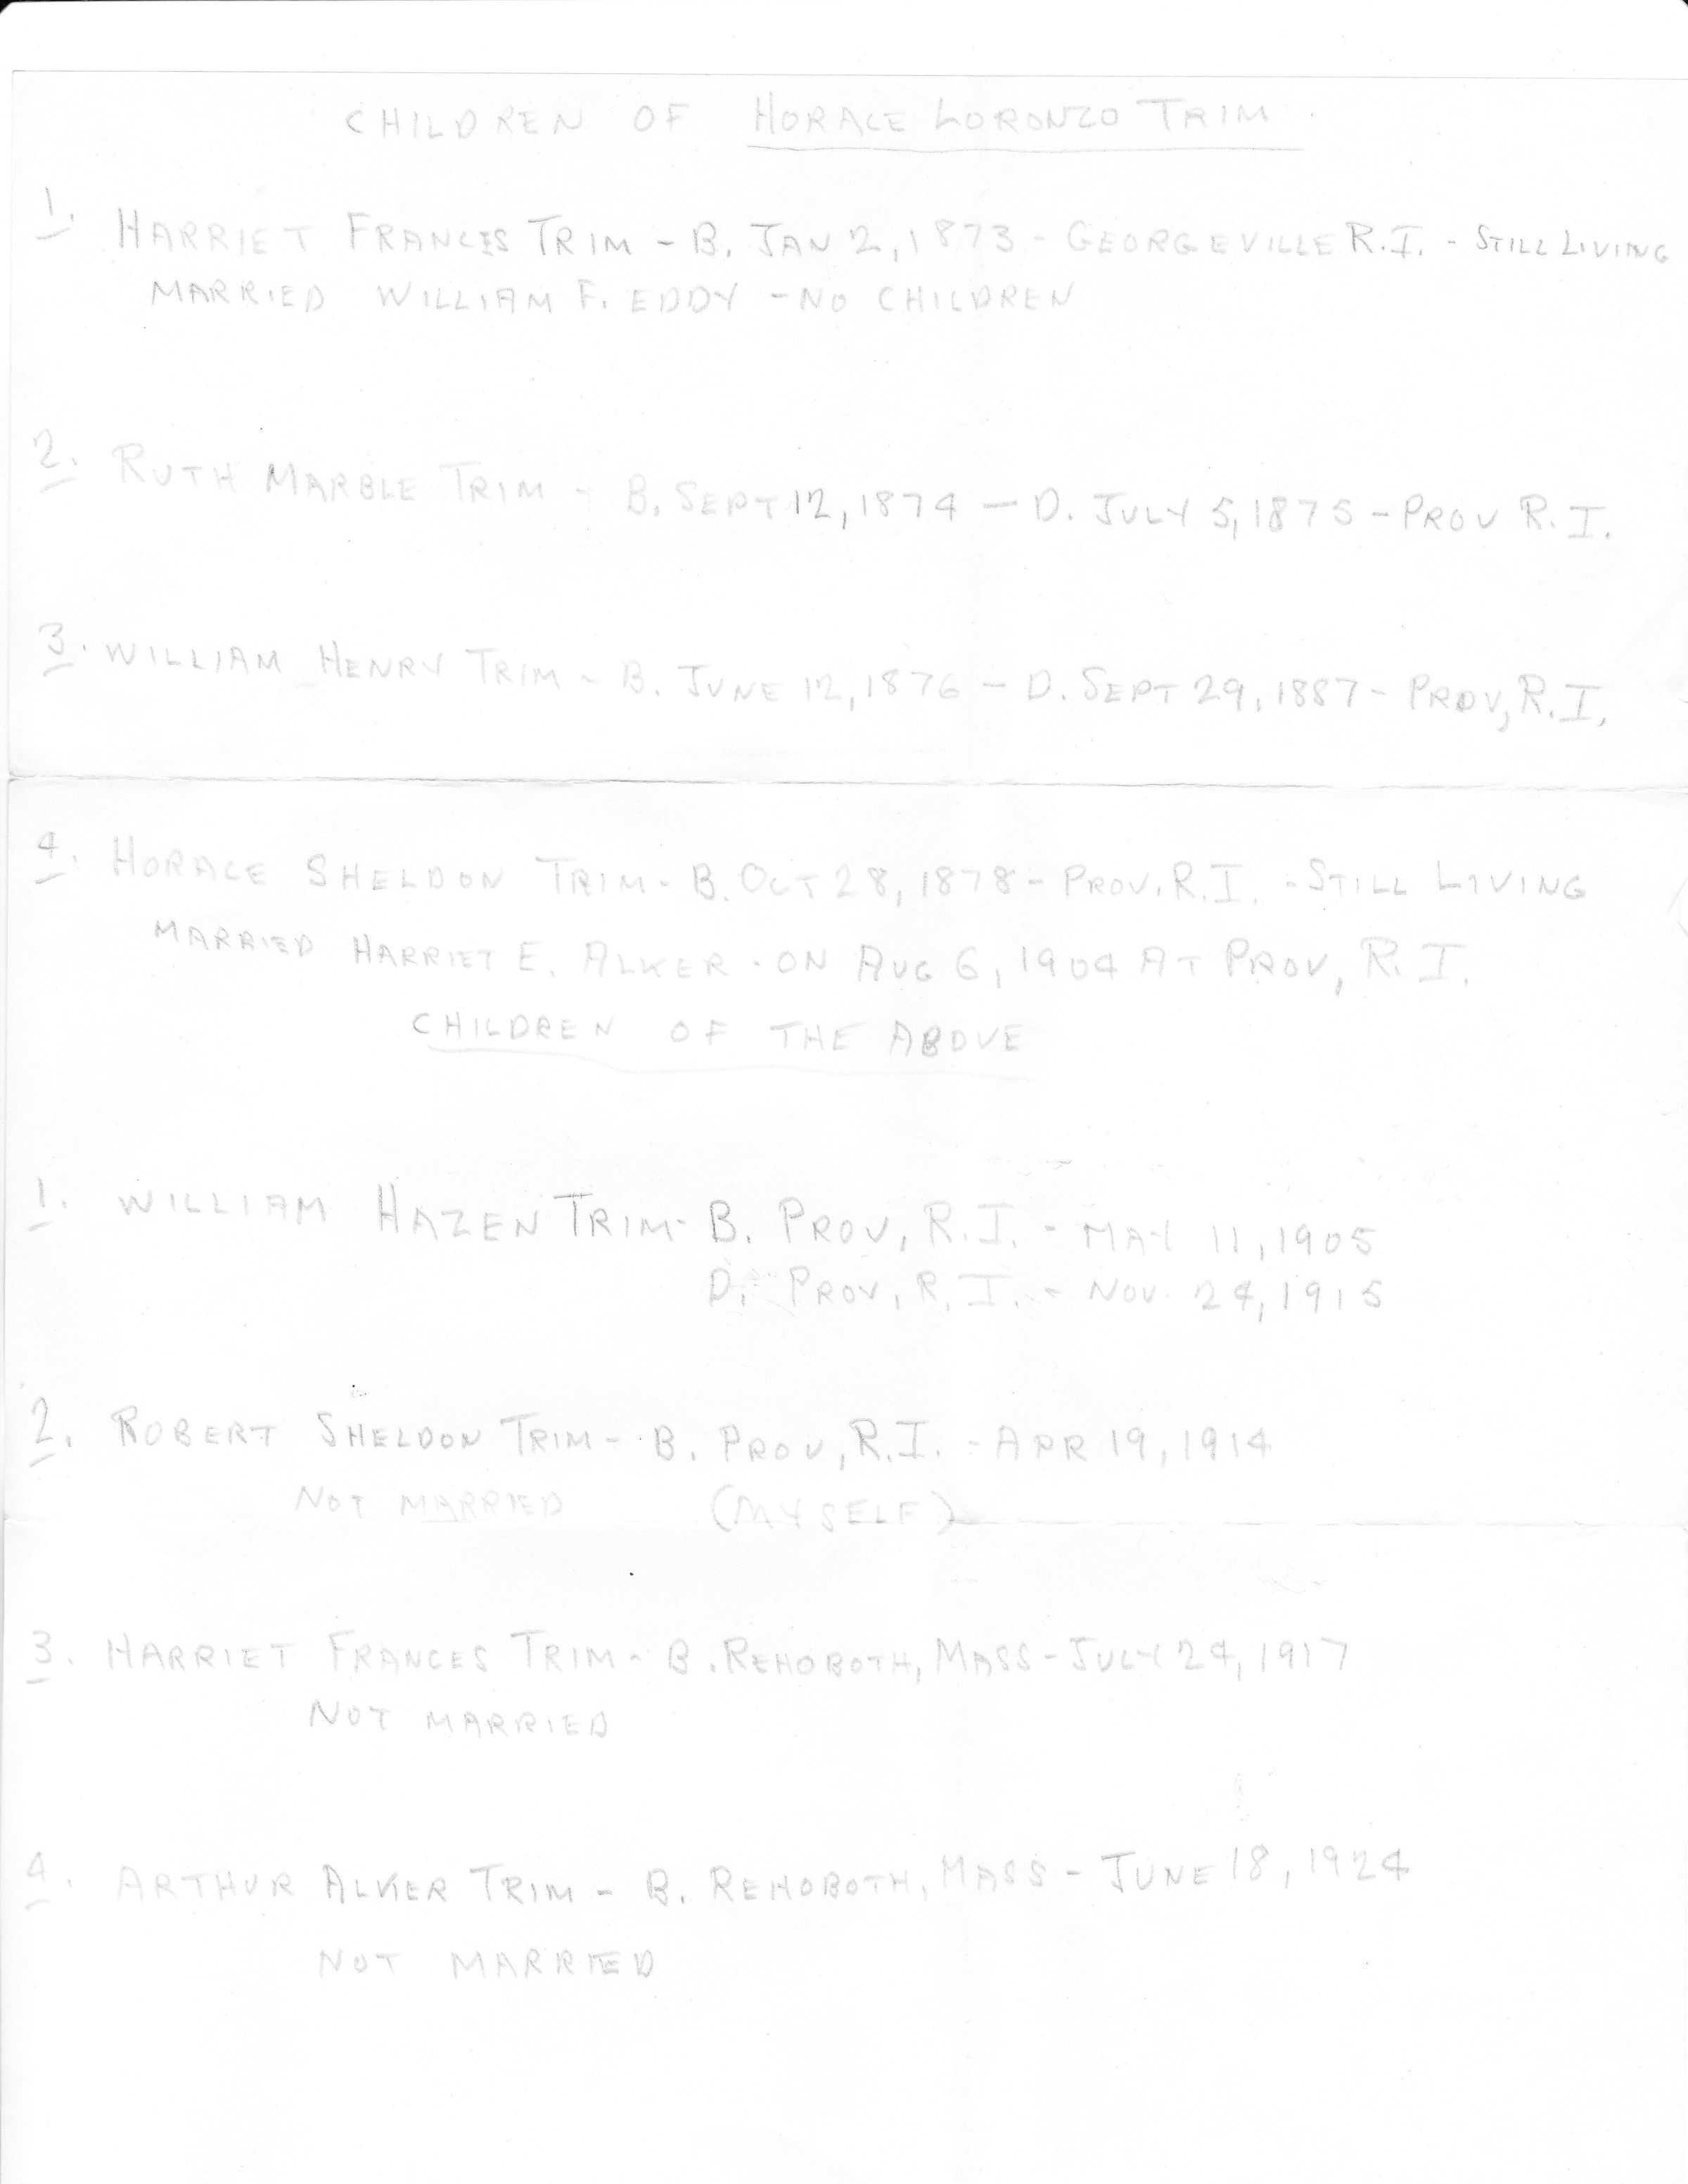 CHILDREN OF HORACE LORONZO TRIM
1. HARRIET FRANCES TRIM - B. JAN 2, 1873 - GEORGEVILLE R.I. - STILL LIVING
MARRIED WILLIAM F. EDDY - NO CHILDREN
2. RUTH MARBLE TRIM - B. SEPT 12, 1874 - D. JULY 5, 1875 - PROV R.I.
3. WILLIAM HENRY TRIM - B. JUNE 12, 1876 - D. SEPT 29, 1887 - PROV, R.I.
4. HORACE SHELDON TRIM - B. OCT 28, 1878 - PROV. R.I. - STILL LIVING
MARRIED HARRIET E. ALKER - ON AUG 6, 1904 AT PROV, R.I.
CHILDREN OF THE ABOVE
1. WILLIAM HAZEN TRIM - B. PROV, R.I. - MAY 11, 1905
D. PROV, R.I. - NOV. 24, 1915
2. ROBERT SHELDON TRIM - B. PROV, R.I. - APR 19, 1914
NOT MARRIED (MYSELF)
3. HARRIET FRANCES TRIM - B. REHOBOTH, MASS - JULY 24, 1917
NOT MARRIED
4. ARTHUR ALKER TRIM - B. REHOBOTH, MASS - JUNE 18, 1924
NOT MARRIED